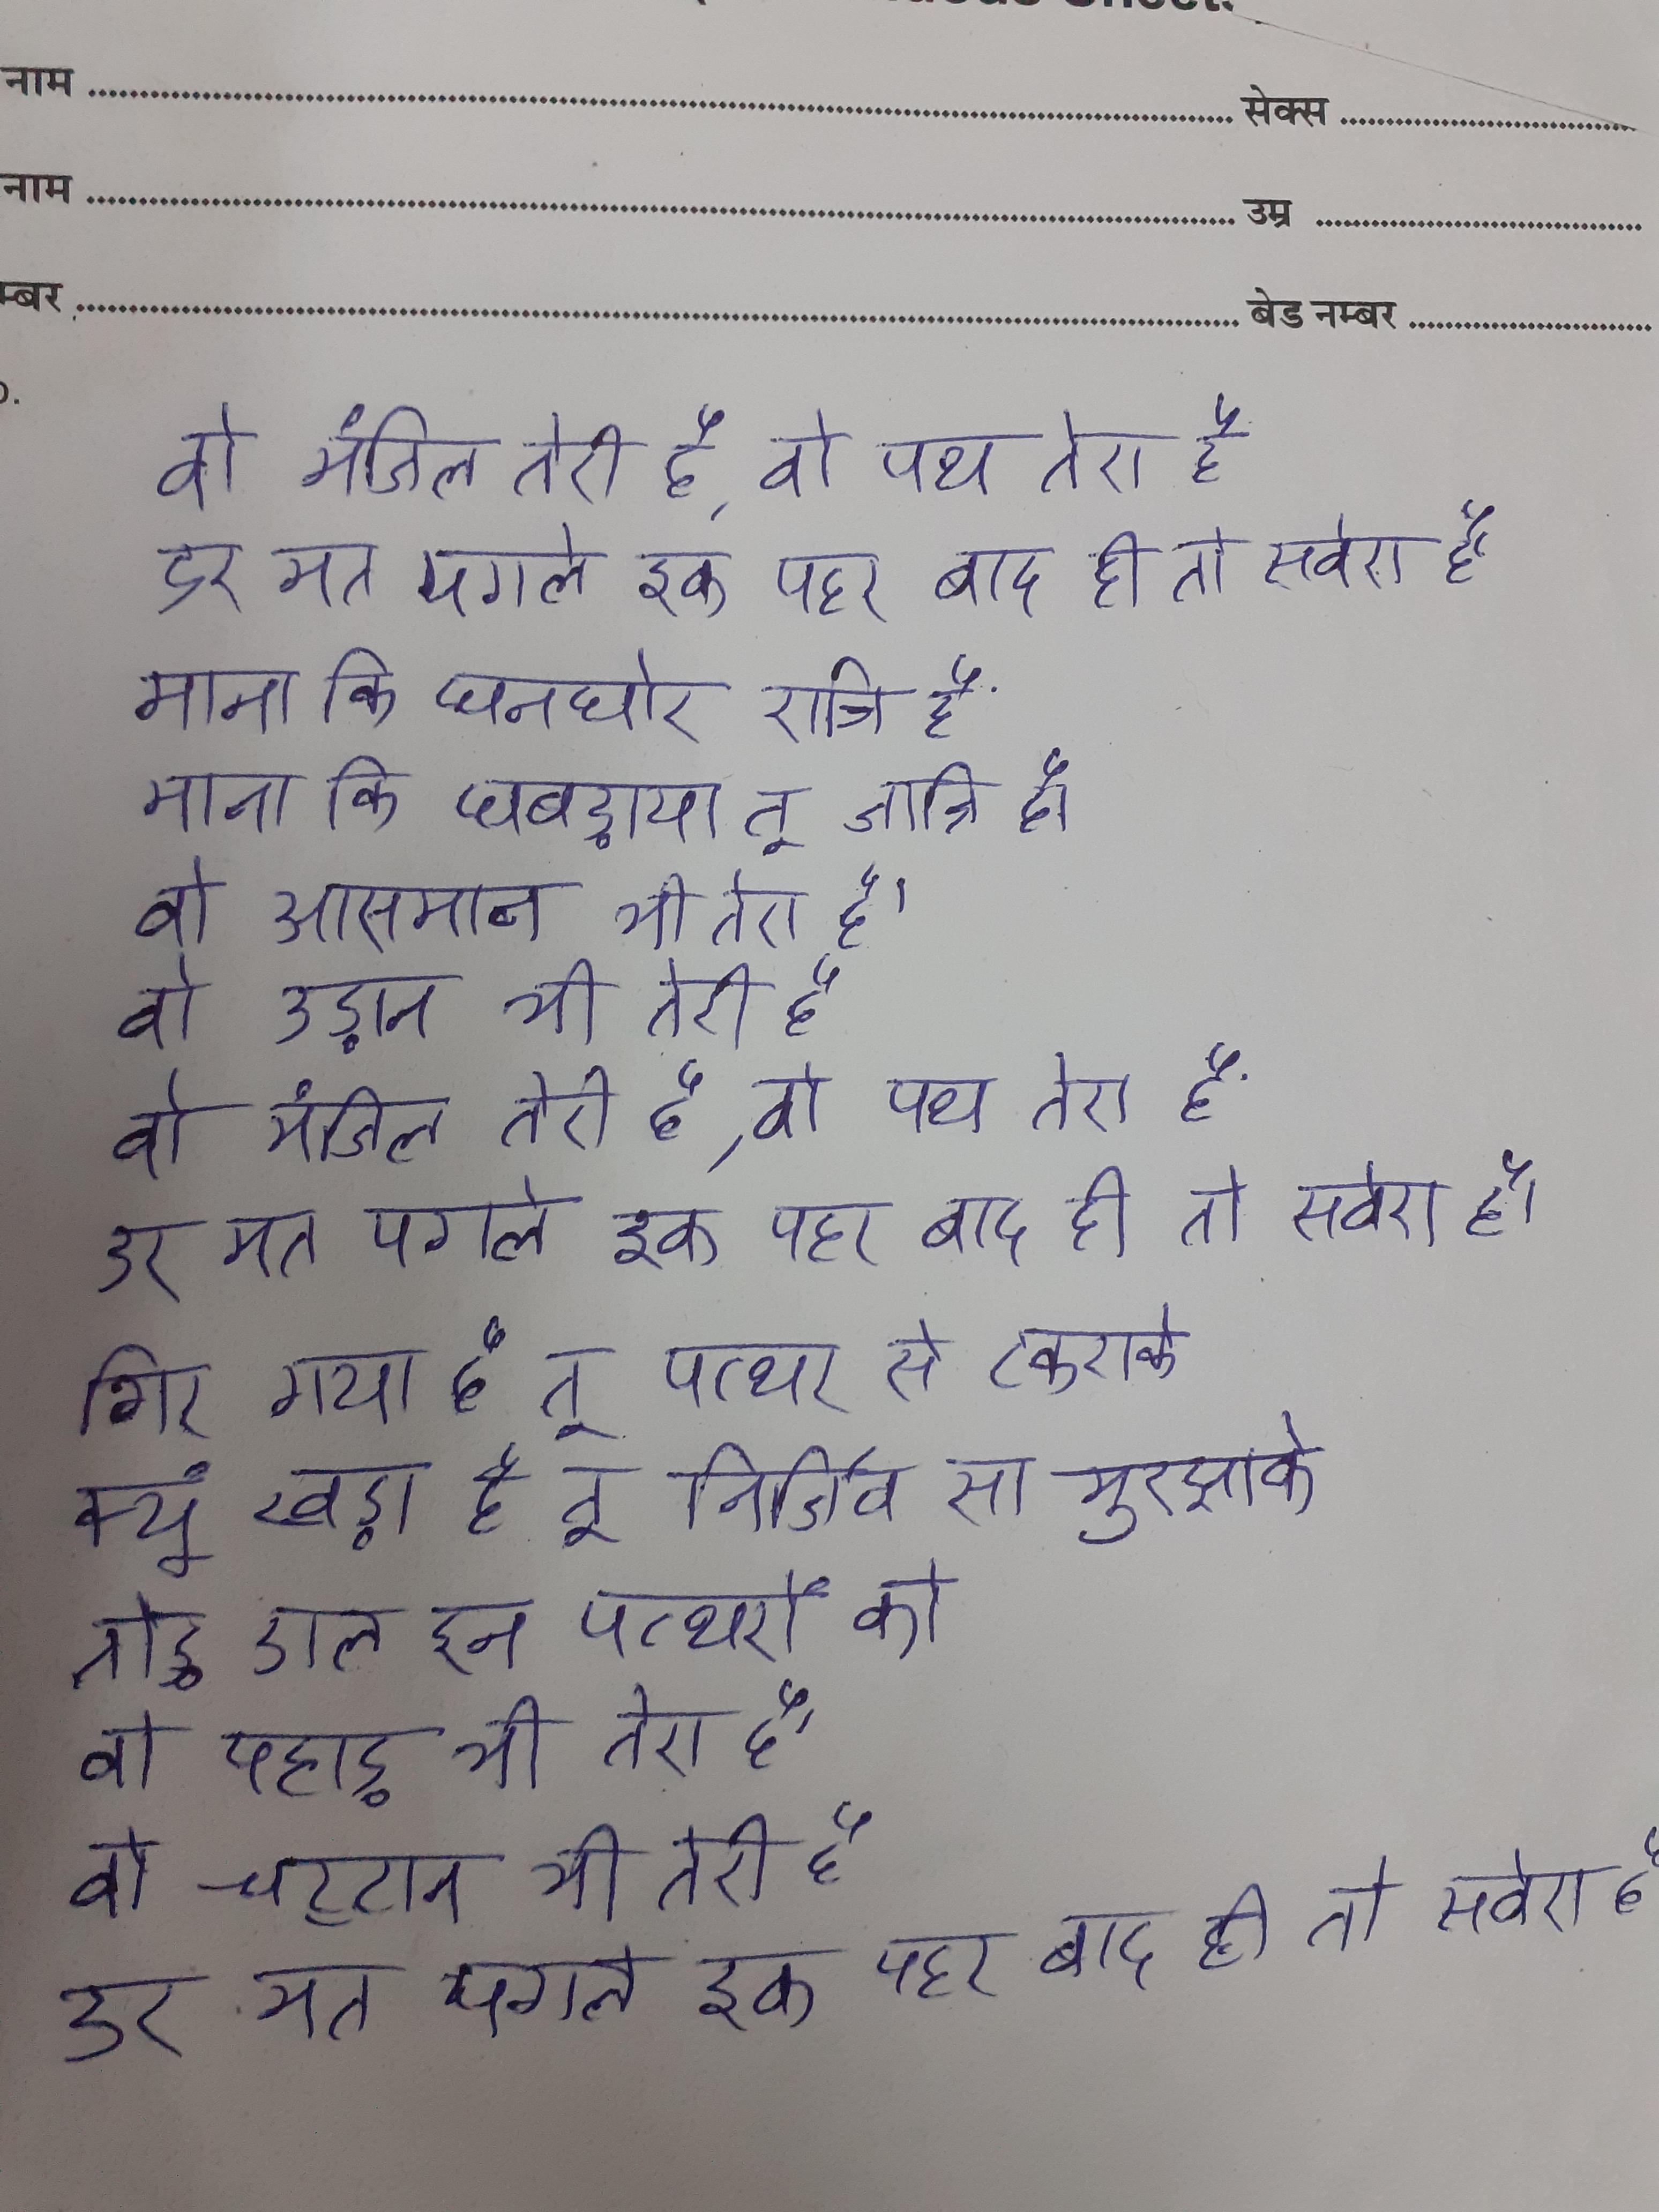 नाम ........ सेक्स ........
नाम ........ उम्र ........
म्बर ........ बेड नम्बर ........
वो मंजिल तेरी है, वो पथ तेरा है
डर मत पगले इक पहर बाद ही तो सवेरा है
माना कि घनघोर रात्रि है
माना कि घबड़ाया तू जात्रि है।
वो आसमान भी तेरा है।
वो उड़ान भी तेरी है
वो मंजिल तेरी है, वो पथ तेरा है
डर मत पगले इक पहर बाद ही तो सवेरा है।
गिर गया है तू पत्थर से टकराके
क्यूं खड़ा है तू निर्जिव सा मुरझाके
तोड़ डाल इन पत्थरों को
वो पहाड़ भी तेरा है,
वो चट्टान भी तेरी है
डर मत पगले इक पहर बाद ही तो सवेरा है